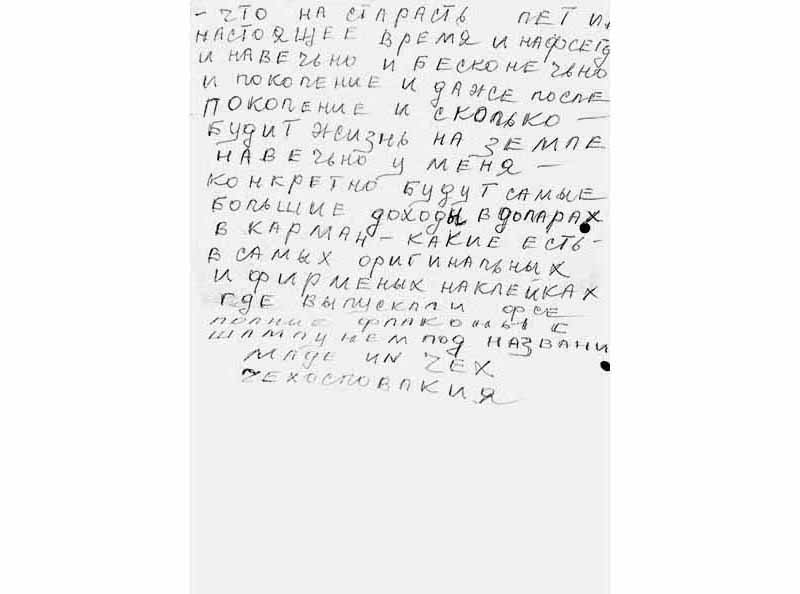 - ЧТО НА СТАРАСТЬ ЛЕТ И
НАСТОЯЩЕЕ ВРЕМЯ И НАФСЕГД
И НАВЕЧЬНО И БЕСКОНЕЧЬНО
И ПОКОЛЕНИЕ И ДАЖЕ ПОСЛЕ
ПОКОЛЕНИЕ И СКОЛЬКО —
БУДИТ ЖИЗНЬ НА ЗЕМЛЕ
НАВЕЧЬНО У МЕНЯ —
КОНКРЕТНО БУДУТ САМЫЕ
БОЛЬШИЕ ДОХОДЫ В ДОЛАРАХ
В КАРМАН — КАКИЕ ЕСТЬ -
В САМЫХ ОРИГИНАЛЬНЫХ
И ФИРМЕНЫХ НАКЛЕЙКАХ
ГДЕ ВЫПУСКАЛИ ФСЕ
ПОЛНИЕ ФЛАКОНЫ С
ШАМПУНЕМ ПОД НАЗВАНИ
MADE IN ЧЕХ
ЧЕХОСЛОВАКИЯ